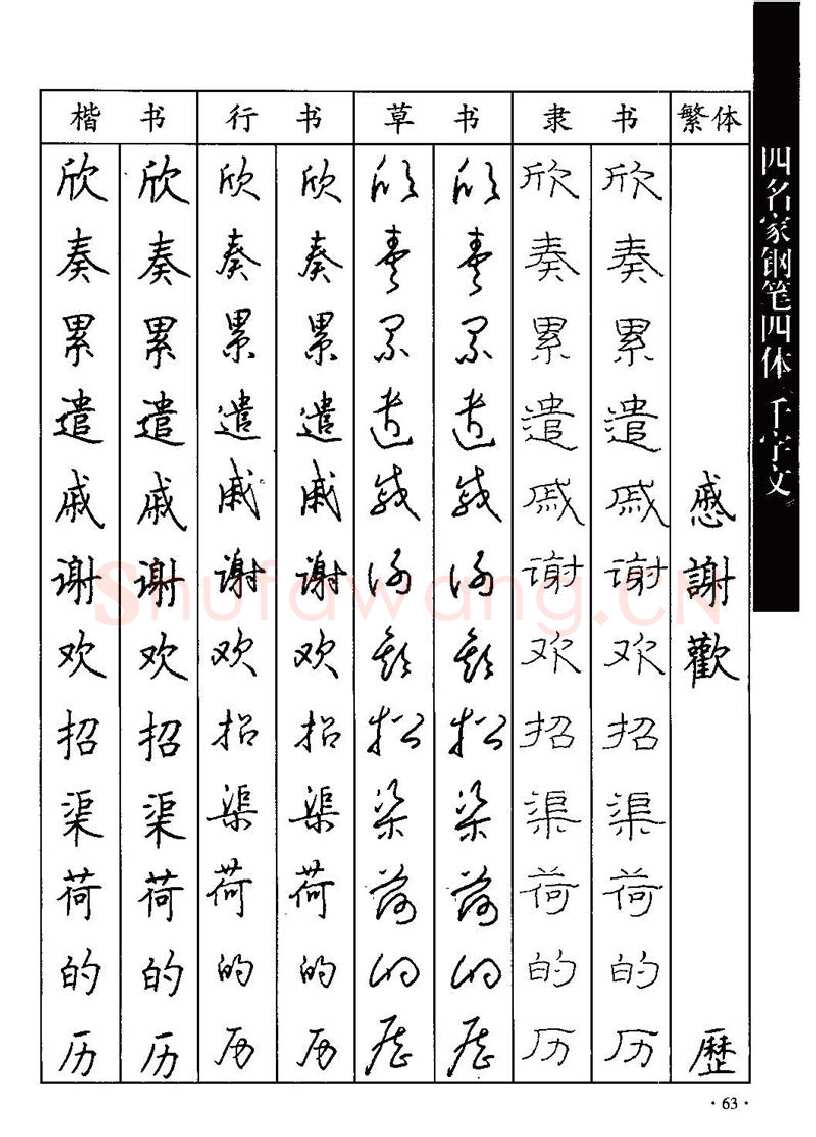 楷书 行书 草书 隶书 繁体
欣 欣 欣 欣 欣 欣 欣 欣
奏 奏 奏 奏 奏 奏 奏 奏
累 累 累 累 累 累 累 累
遣 遣 遣 遣 遣 遣 遣 遣
戚 戚 戚 戚 戚 戚 戚 戚 慼
谢 谢 谢 谢 谢 谢 谢 谢 謝
欢 欢 欢 欢 欢 欢 欢 欢 歡
招 招 招 招 招 招 招 招
渠 渠 渠 渠 渠 渠 渠 渠
荷 荷 荷 荷 荷 荷 荷 荷
的 的 的 的 的 的 的 的
历 历 历 历 历 历 历 历 歷
四名家钢笔四体千字文
Shufawang.CN
·63·